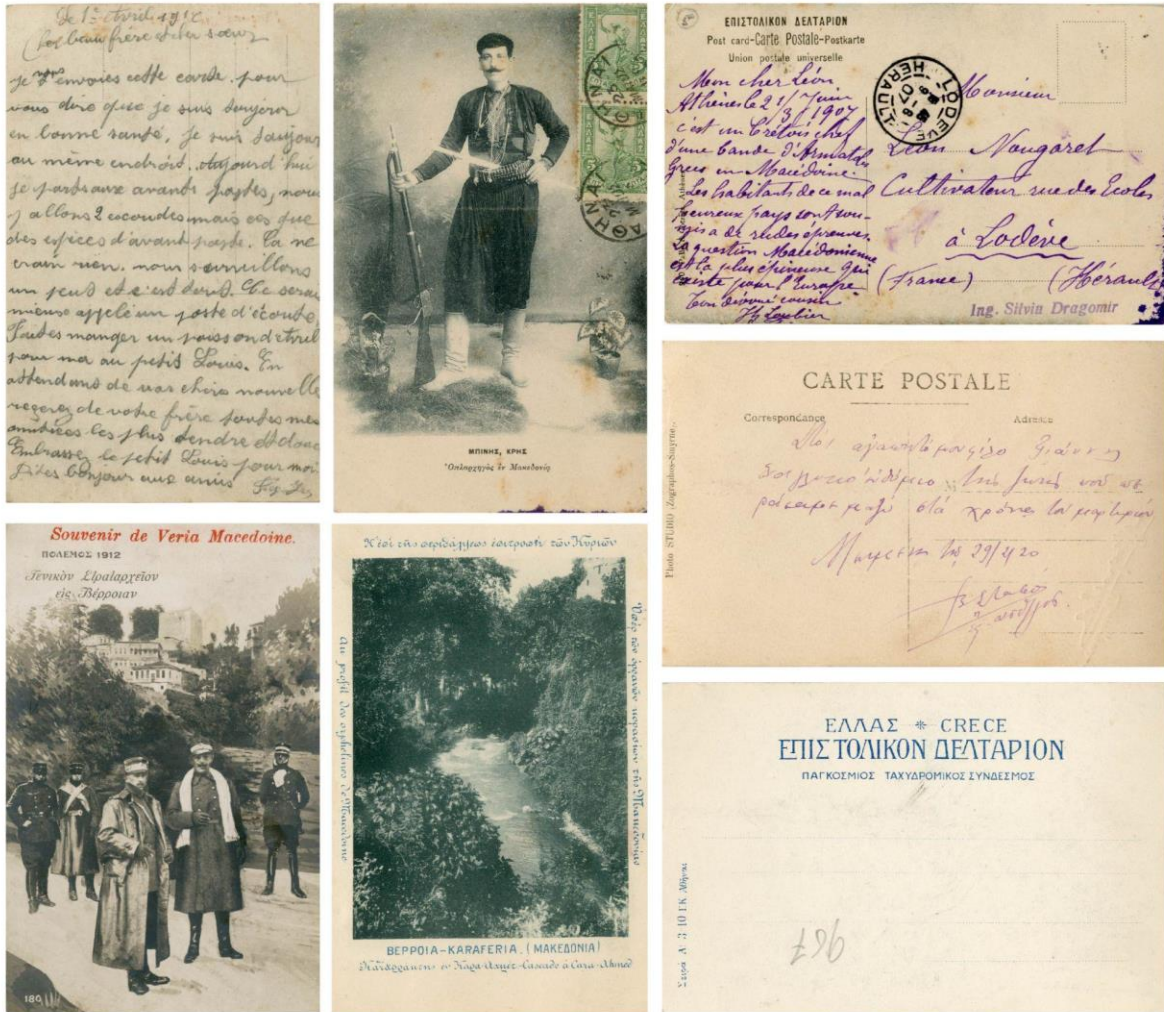 De 1er Avril 191
Cher beau frère et cher sœur
je vous envoies cette carde. pour
vous dire que je suis toujoror
en bonne santé, je suis toujour
au même endroit. aujourd'hui
je parts aux avants postes, nous
y allons 2 escoudes mais ces que
des espices d'avant poste. Ca ne
crain rien. nous surveillons
un peut et c'est tout. Ce serai
mieux appelé un poste d'écoute
Faites manger un poisson d'avril
pour moi au petit Louis. En
attendant de vos chère nouvelle
recevez de votre frère toutes mes
amitiées les plus tendre et doux
Embrassez le petit Louis pour moi
Dites bonjour aux amis
ΑΘΗΝΑΙ
ΑΘΗΝΑΙ
ΕΛΛΑΣ
5
5
ΜΠΙΝΗΣ, ΚΡΗΣ
Ὁπλαρχηγὸς ἐν Μακεδονίᾳ
ΕΠΙΣΤΟΛΙΚΟΝ ΔΕΛΤΑΡΙΟΝ
Post card-Carte Postale-Postkarte
Union postale universelle
Mon cher Léon
Athènes le 21/3 Juin 1907
c'est un Crétois chef
d'une bande d'Armatoles
Grecs en Macédoine.
Les habitants de ce mal
heureux pays sont sou-
mis a de rudes épreuves.
La question Macédonienne
est la plus épineuse qui
existe pour l'Europe
Ton dévoué cousin
LODEVE
HERAULT
07
Monsieur
Léon Nougaret
Cultivateur rue des Ecoles
à Lodève
(France) (Hérault)
Ing. Silviu Dragomir
CARTE POSTALE
Correspondance
Adresse
Photo STUDIO Zographos-Smyrne.
Στὸν ἀγαπητό μου φίλο Γιάννη
τῆς ζωῆς ποὺ πε
ράσαμε μαζὺ στὰ χρόνια τοῦ μαρτυρίου
29/2/20
Souvenir de Veria Macedoine.
ΠΟΛΕΜΟΣ 1912
Γενικὸν Στραταρχεῖον
εἰς Βέρροιαν
180
Ἡ ἐπὶ τῆς περιθάλψεως ἐπιτροπὴ τῶν Κυριῶν
Ὑπὲρ τῶν ὀρφανῶν κορασίων τῆς Μακεδονίας
Au profit des orphelines de Macédoine
ΒΕΡΡΟΙΑ-KARAFERIA. (ΜΑΚΕΔΟΝΙΑ)
Καταρράκτης ἐν Καρα-Αχμετ-Cascade à Cara-Ahmed
ΕΛΛΑΣ * CRECE
ΕΠΙΣΤΟΛΙΚΟΝ ΔΕΛΤΑΡΙΟΝ
ΠΑΓΚΟΣΜΙΟΣ ΤΑΧΥΔΡΟΜΙΚΟΣ ΣΥΝΔΕΣΜΟΣ
Σειρὰ Α 3, 10 Γ.Κ Ἀθῆναι
967